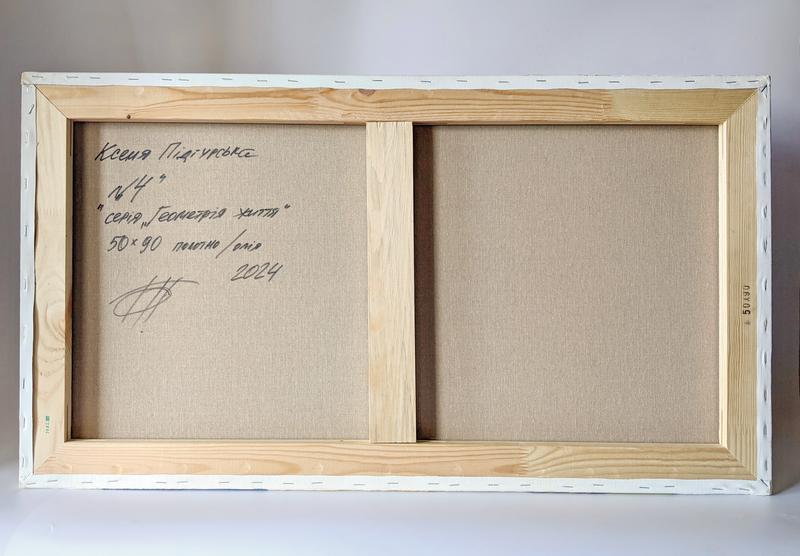 Ксенія Підгурська
"№4"
"серія „Геометрія життя"
50×90 полотно/олія
2024
50x90